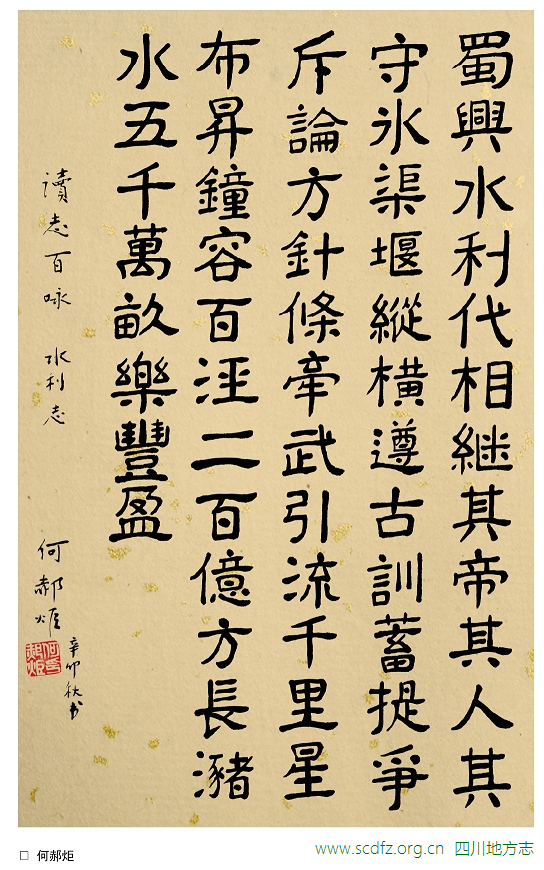 蜀興水利代相継其帝其人其
守氷渠堰縱橫遵古訓蓄提爭
斥論方針條牽武引流千里星
布昇鐘容百洭二百億方長瀦
水五千萬畝樂豐盈
讀志百咏 水利志
何郝炬 辛卯秋书
何郝炬
www.scdfz.org.cn 四川地方志